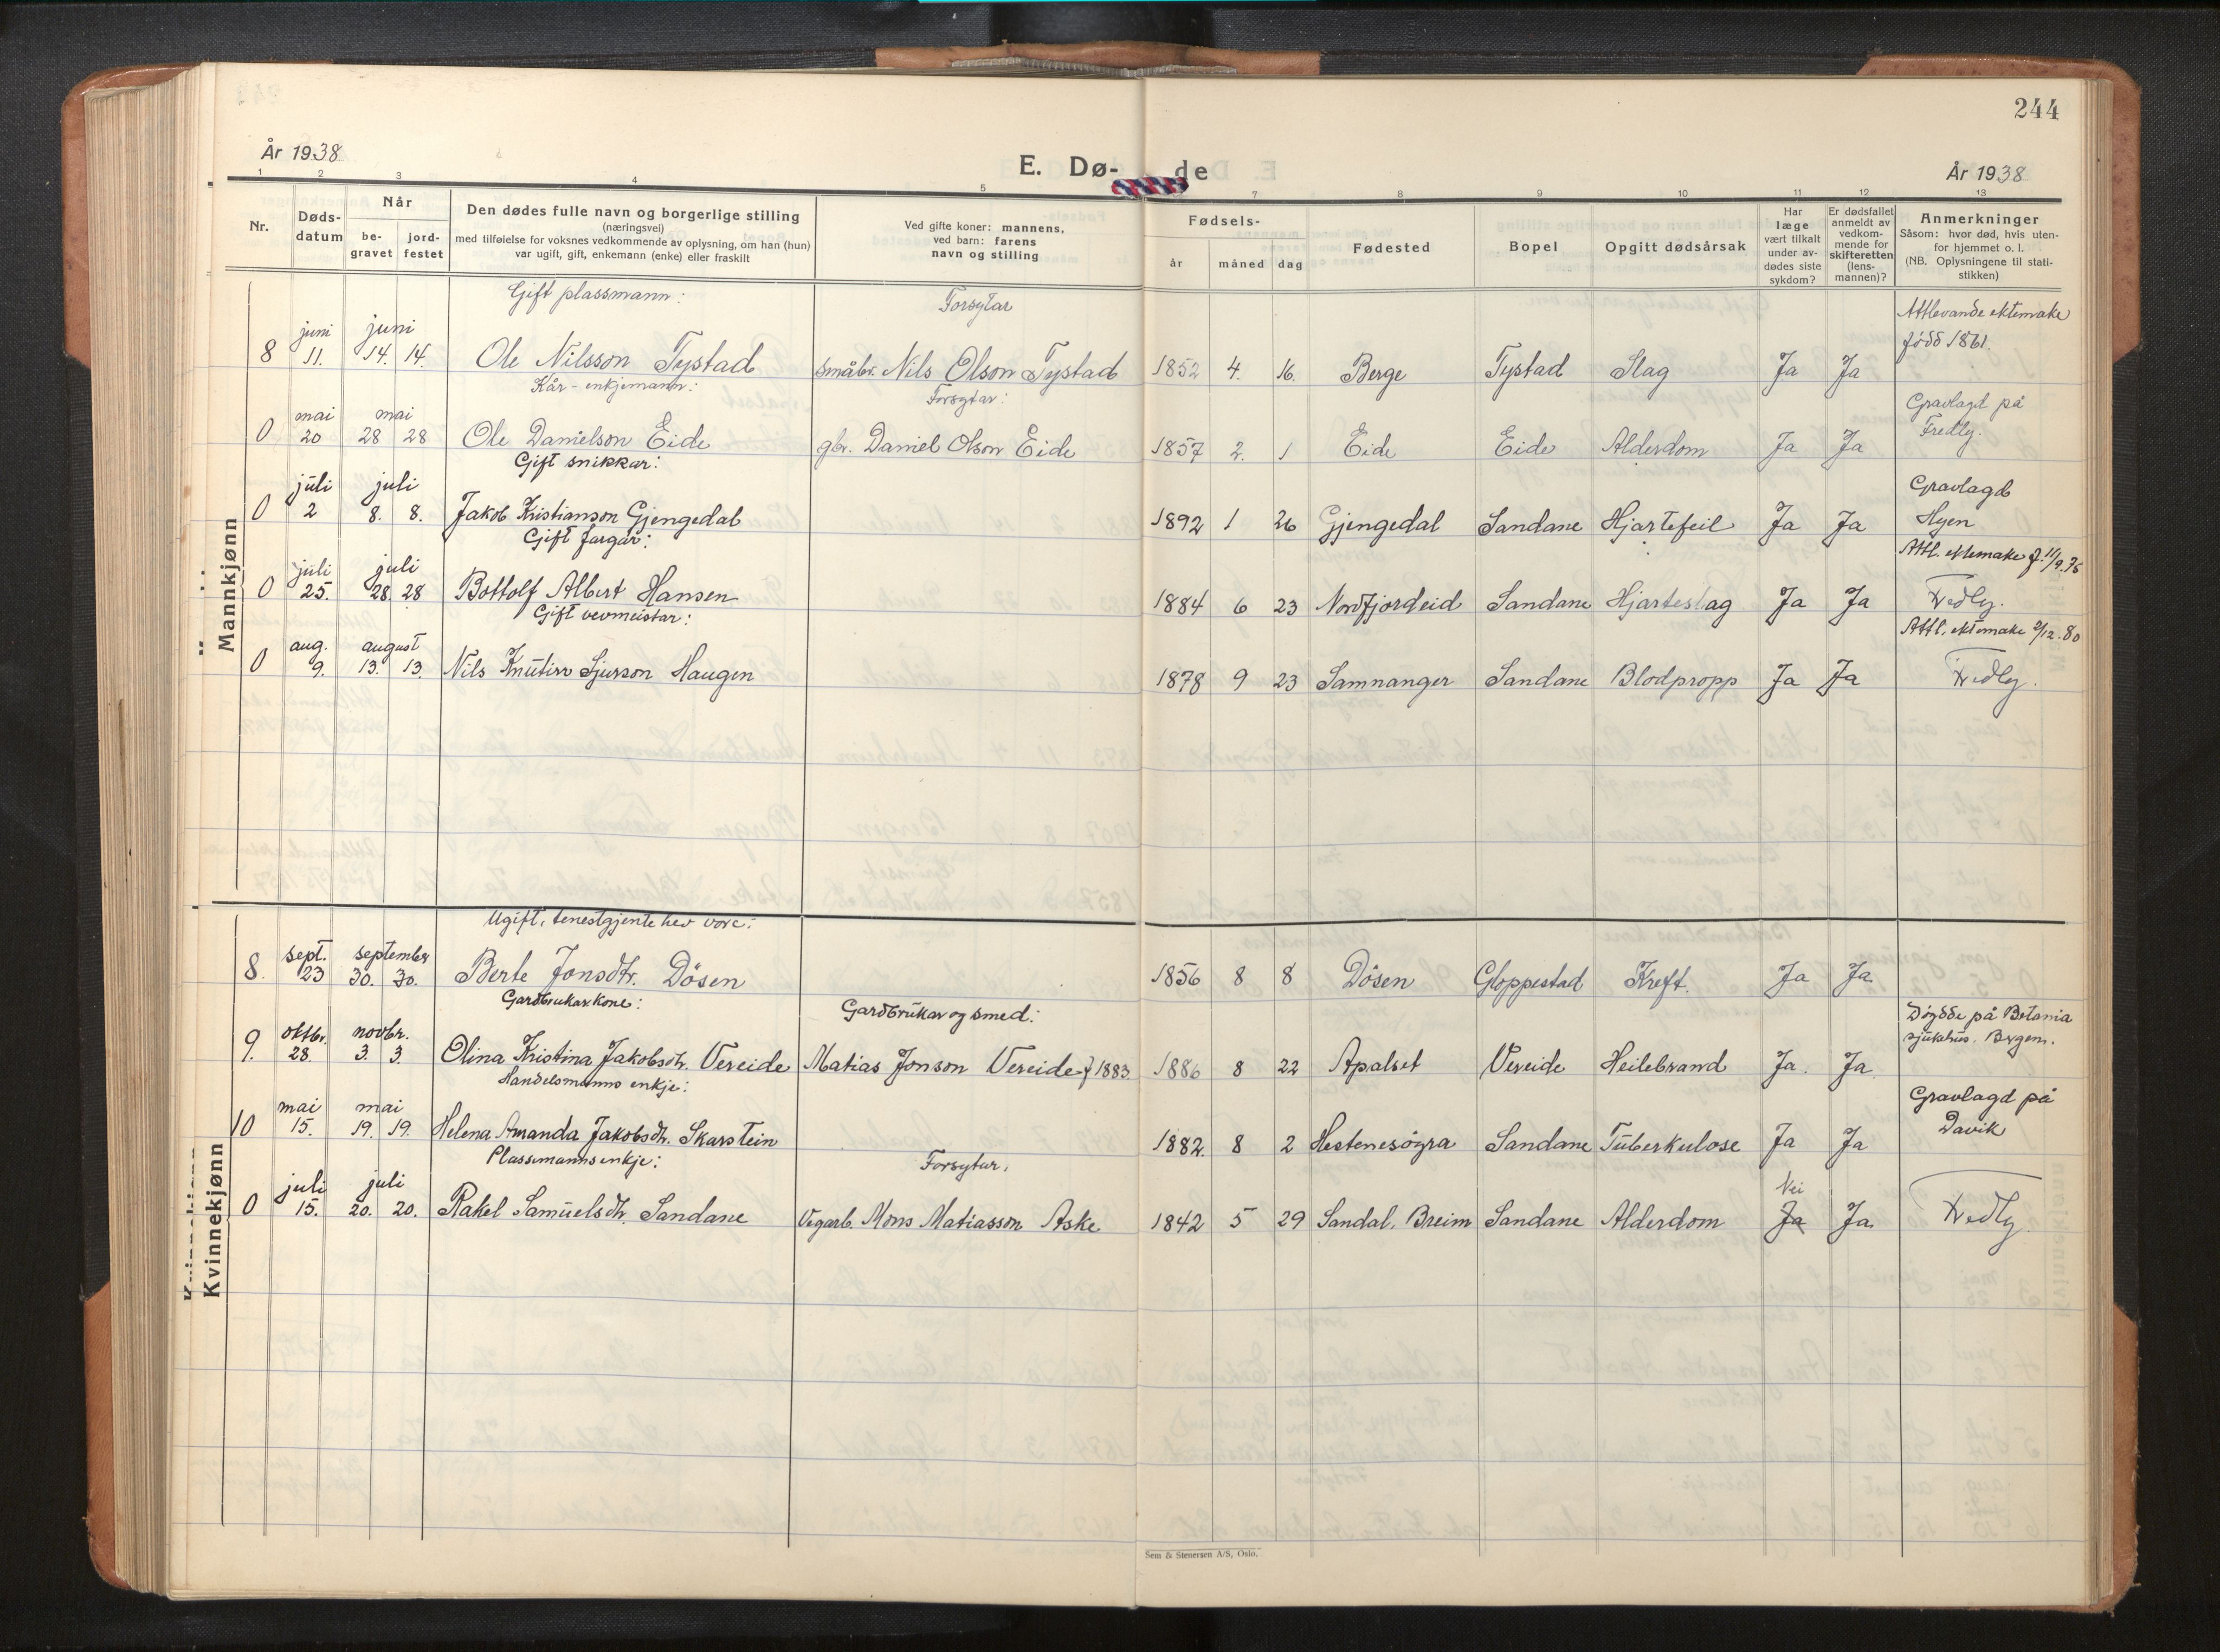 244
År 1938
E. Dø-
de
År 1938
1 2 3 4 5 7 8 9 10 11 12 13
Nr.
Døds-
datum
Når
be-
gravet
jord-
festet
Den dødes fulle navn og borgerlige stilling
(næringsvei)
med tilføielse for voksnes vedkommende av oplysning, om han (hun)
var ugift, gift, enkemann (enke) eller fraskilt
Ved gifte koner: mannens,
ved barn: farens
navn og stilling
Fødsels-
år måned dag
Fødested
Bopel
Opgitt dødsårsak
Har
læge
vært tilkalt
under av-
dødes siste
sykdom?
Er dødsfallet
anmeldt av
vedkom-
mende for
skifteretten
(lens-
mannen)?
Anmerkninger
Såsom: hvor død, hvis uten-
for hjemmet o. l.
(NB. Oplysningene til stati-
stikken)
Mannkjønn
Gift plassmann: Forsytar Attlevande ektemake
juni juni født 1861.
8 11. 14. 14. Ole Nilsson Tystad småbr. Nils Olson Tystad 1852 4. 16. Berge Tystad Slag Ja Ja
Kår-enkjemann: Forsytar: Gravlagd på
mai mai Fredly.
0 20 28 28 Ole Danielson Eide gbr. Daniel Olson Eide 1857 2. 1 Eide Eide Alderdom Ja Ja
Gift snikkar:
juli juli Gravlagd
0 2 8. 8. Jakob Kristianson Gjengedal 1892 1 26 Gjengedal Sandane Hjartefeil Ja Ja Hyen
Gift fargar: Attl. ektemake f. 11/9.75
juli juli
0 25. 28. 28 Bottolf Albert Hansen 1884 6 23 Nordfjordeid Sandane Hjarteslag Ja Ja Fredly.
Gift vevmeistar: Attl. ektemake 2/12.80
aug. august
0 9. 13. 13. Nils Knutson Sjurson Haugen 1878 9 23 Samnanger Sandane Blodpropp Ja Ja Fredly.
Kvinnekjønn
Ugift, tenestgjente hev vore:
sept. september
8. 23 30. 30. Berte Jonsdtr. Dösen 1856 8 8 Dösen Gloppestad Kreft. Ja Ja.
Gardbrukarkone: Gardbrukar og smed: Döydde på Betania
oktbr. novbr. sjukehus. Bergen.
9. 28. 3. 3. Olina Kristina Jakobsdtr. Vereide Matias Jonson Vereide f 1883. 1886 8 22 Apalset Vereide Heilebrand Ja. Ja.
Handelsmanns enkje: Gravlagd på
mai mai Davik
10 15. 19. 19. Helena Amanda Jakobsdtr. Skarstein 1882. 8 2 Hestenesöyra Sandane Tuberkulose Ja Ja
Plassmannsenkje: Forsytar.
juli juli Nei
0 15. 20. 20. Rakel Samuelsdtr. Sandane Vegarb. Mons Matiasson Aske 1842 5 29 Sandal, Breim Sandane Alderdom Ja Ja. Fredly.
Sem & Stenersen A/S, Oslo.